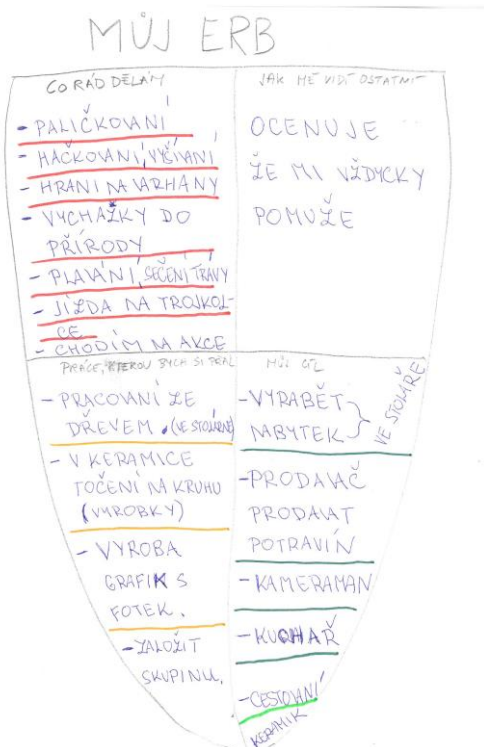 MŮJ ERB
CO RÁD DĚLÁM
- PALIČKOVANÍ
- HÁČKOVANÍ, VYŠÍVANÍ
- HRANI NA VARHANY
- VYCHÁŽKY DO
PŘÍRODY
- PLAVÁNÍ, SEČENÍ TRÁVY
- JÍZDA NA TROJKOL-
CE
- CHODÍM NA AKCE
JAK MĚ VIDÍ OSTATNÍ
OCENUJE
ŽE MI VŽDYCKY
POMUŽE
PRÁCE, KTEROU BYCH SI PŘÁL
- PRACOVANÍ ZE
DŘEVEM. (VE STOLÁRNĚ)
- V KERAMICE
TOČENÍ NA KRUHU
(VYROBKY)
- VYROBA
GRAFIK S
FOTEK.
- ZALOŽIT
SKUPINU.
MŮJ CÍL
- VYRABĚT
NABYTEK
VE STOLÁŘE
- PRODAVAČ
PRODAVAT
POTRAVIN
- KAMERAMAN
- KUCHAŘ
- CESTOVANÍ
KERAMIK